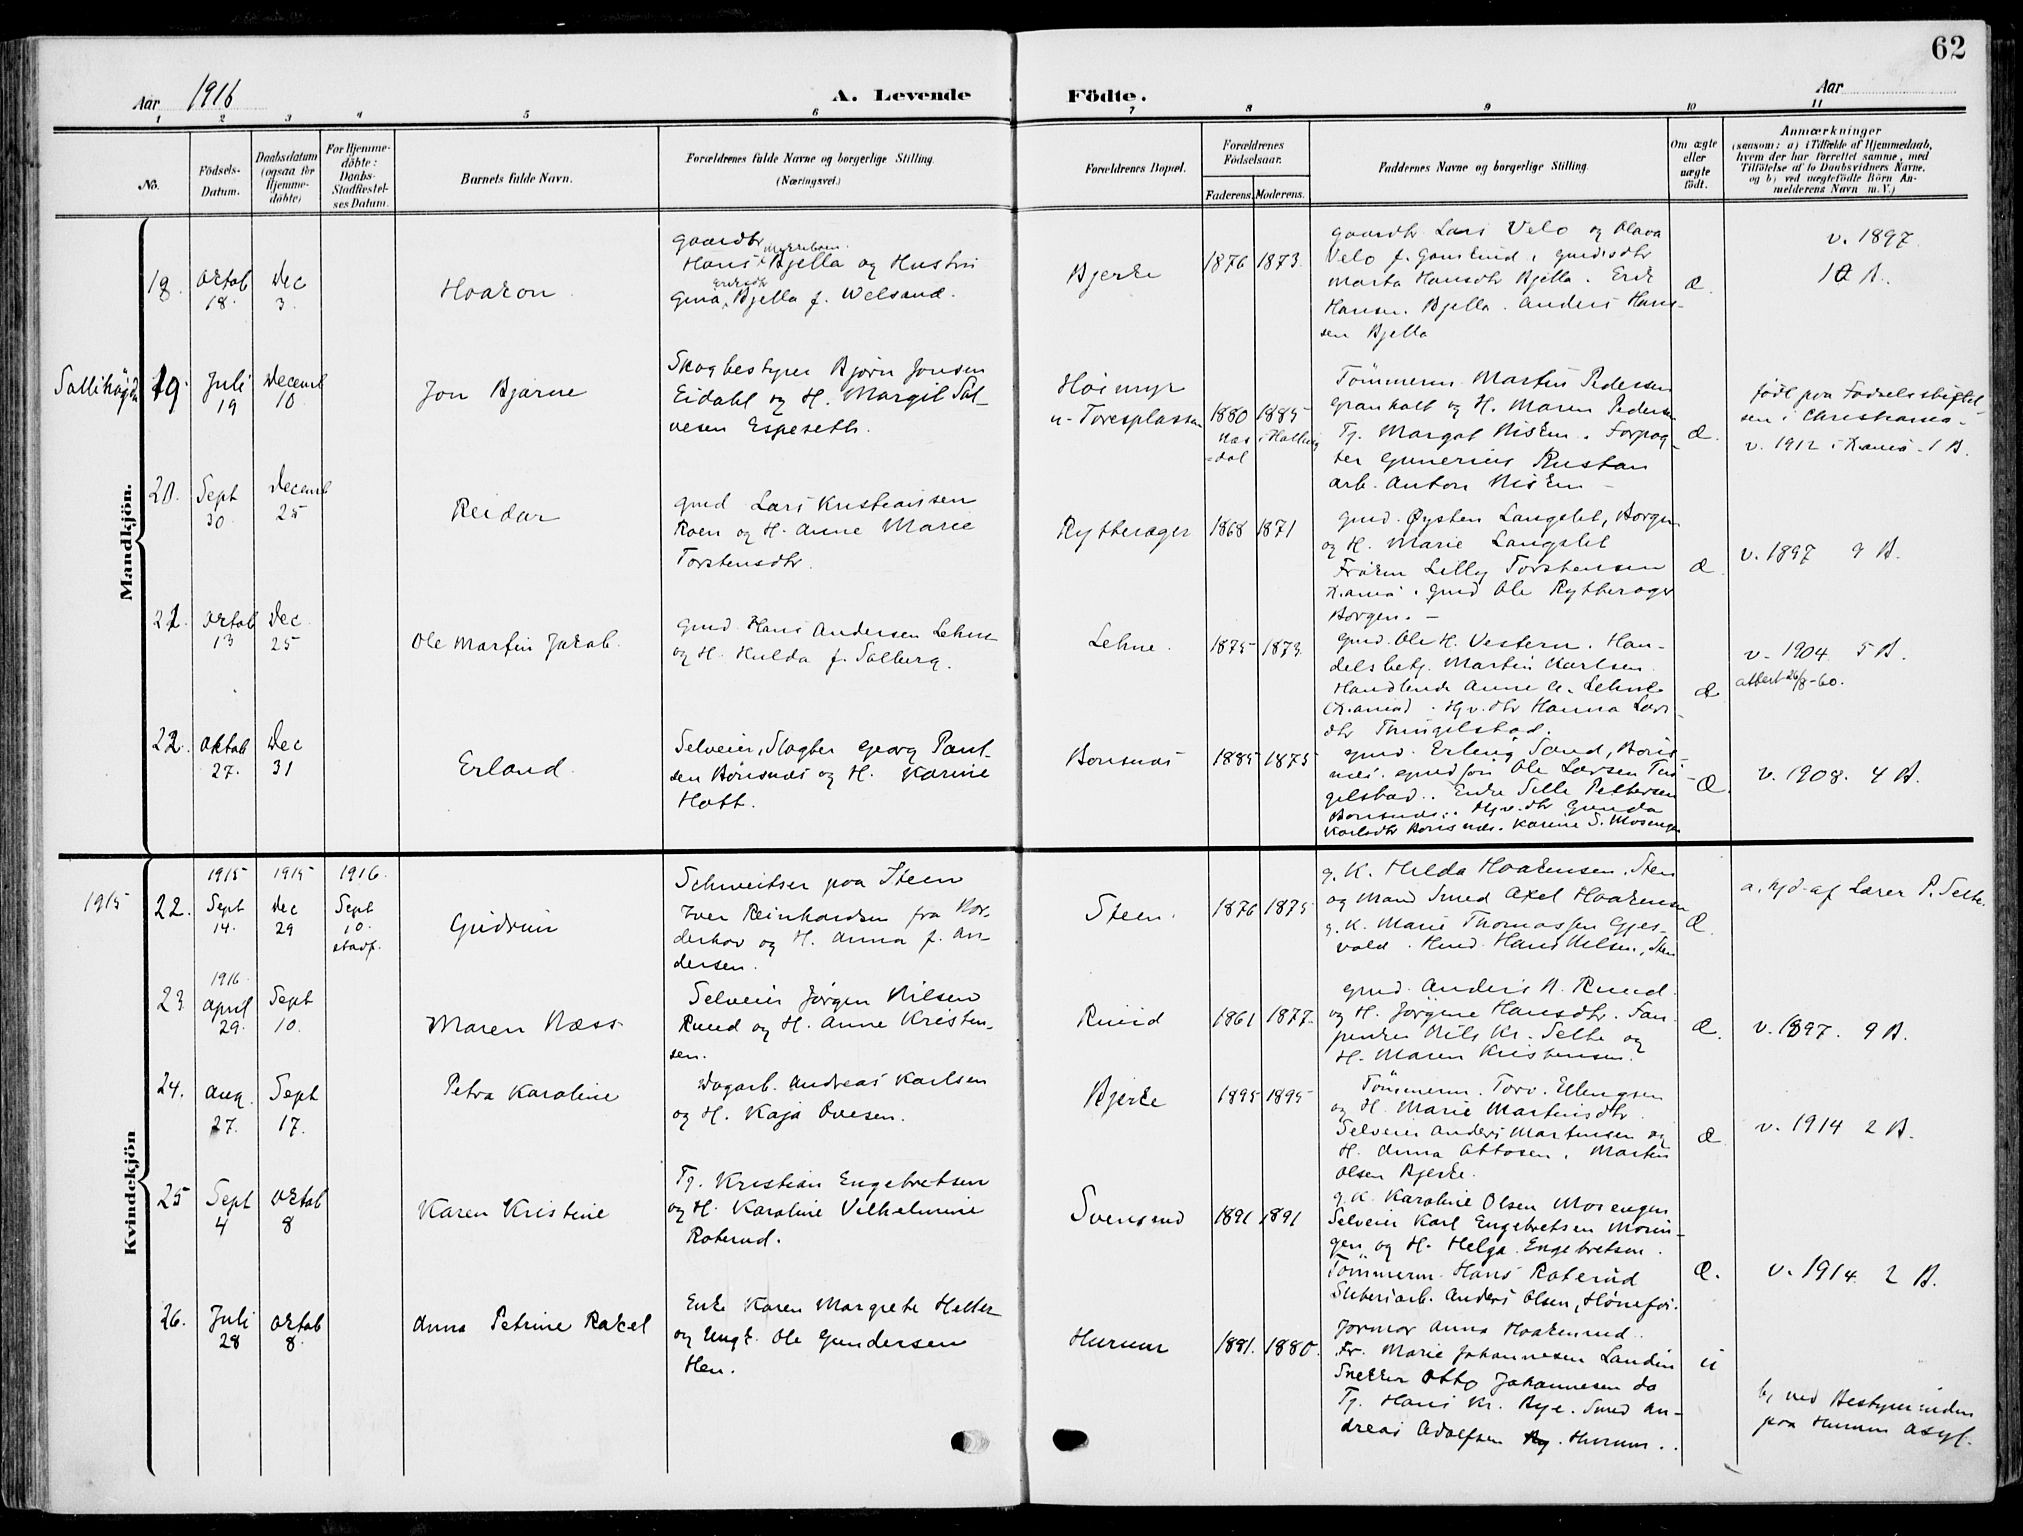 62
Aar 1916
A. Levende Födte.
Aar
1 2 3 4 5 6 7 8 9 10 11
No.
Födsels-
Datum.
Daabsdatum
(ogsaa for
Hjemme-
döbte)
For Hjemme-
döbte:
Daabs-
Stadfæstel-
ses Datum.
Barnets fulde Navn.
Forældrenes fulde Navne og borgerlige Stilling.
(Næringsvei.)
Forældrenes Bopæl.
Forældrenes
Födselsaar.
Faderens. Moderens.
Faddernes Navne og borgerlige Stilling.
Om ægte
eller
uægte
født.
Anmærkninger
(saasom: a) i Tilfælde af Hjemmedaab,
hvem der har forrettet samme, med
Tilföielse af to Daabsvidners Navne.
og b) ved uægtefödte Börn An-
melderens Navn m. V.)
Mandkjön.
18.
Oktob
18.
Dec
3.
Haakon
Gaardbr
Hans Bjella og Hustru
Eriksdtr
Gina Bjella f. Welsand.
Bjerke
1876 1873.
Gaardbr. Lars Velo og Olava
Velo f. Gamlund, gmdsdtr
Marta Hansdtr Bjella. Erik
Hansen Bjella. Anders Han-
sen Bjella
Æ.
v. 1897.
10 B.
19.
Juli
19
Decemb
10
Jon Bjarne
Skogbestyrer Bjørn Jonsen
Eidahl og H. Margit Sal-
vesen Espeseth.
Høimyr
u. Toresplassen
1880 1885
Tömmerm. Martin Pedersen
Granholt og H. Maren Pedersen
Tj. Margot Nisken. Forpag-
ter Gunerius Rustan
arb. Anton Nisken -
Æ.
født paa Fødselsstiftel-
sen i Christiania.
v. 1912 i Kania - 1 B.
20.
Sept
30.
Decemb
25
Reidar
Gmd Lars Kristiansen
Roen og H. Anne Marie
Torstensdtr.
Rytterager
1868 1871
Gmd. Øysten Langslet, Borgen
og H. Marie Langslet
Frøken Lilly Torstensen
Kania. Gmd Ole Rytterager
Borgen. -
Æ.
v. 1897 9 B.
21.
Oktob
13
Dec.
25
Ole Martin Jakob.
Gmd. Hans Andersen Lehne
og H. Hulda f. Solberg.
Lehne.
1875 1873.
Gmd. Ole H. Vestern. Han-
delsbetj. Martin Karlsen.
Handlende Anne A. Lehne
(Kania). Gv. dtr Hanna Lars-
dtr Thingelstad.
Æ
v. 1904. 5 B.
attest 26/8-60.
22.
Oktob
27.
Dec
31
Erland
Selveier, Slagter Georg Paul-
sen Bönsnæs og H. Karine
Hoff.
Bönsnæs
1885 1875
Gmd. Erling Sand, Böns-
næs. Gmdfør Ole Larsen Tin-
gelstad.. Enke Sille Pettersen
Bönsnæs.. Gv. dtr Gunda
Karlsdtr Bönsnæs. Karine S. Mosengen
Æ.
v. 1908. 4 B.
Kvindekjön
1915
22.
1915
Sept
14.
1915
Dec
29
1916.
Sept
10.
stadf.
Gudrun
Schweitser paa Steen
Iver Reinhardsen fra Nor-
derhov og H. Anna f. An-
dersen.
Steen.
1876 1875
g. K. Hilda Haakensen, Sten
og Mand Smed Axel Haakensen
g. K. Marie Thomassen Gjes-
vold. Hmd. Hans Nilsen, Sten
Æ.
a. hjd. af Lærer P. Selte.
23
1916.
April
29.
Sept
10.
Maren Næss
Selveier Jørgen Nilsen
Ruud og H. Anne Kristen-
sen.
Ruud
1861 1877.
Gmd. Anders A. Ruud.
og H. Jørgine Hansdtr. Fan-
penker Nils Kr. Selte og
H. Maren Kristensen.
Æ.
v. 1897. 9 B.
24.
Aug.
27.
Sept
17.
Petra Karoline
Dagarb. Andreas Karlsen
og H. Kaja Ovesen.
Bjerke
1895 1895
Tömmerm. Torv. Ellingsen
og H. Marie Martinsdtr.
Selveier Anders Martinsen og
H. Anna Ottosen. Martin
Olsen Bjerke.
Æ.
v. 1914 2 B.
25
Sept
4
Oktob
8
Karen Kristine
Tj. Kristian Engebretsen
og H. Karoline Vilhelmine
Roterud.
Svensrud
1891 1891
g. K. Karoline Olsen Mosengen
Selveier Karl Engebretsen Mosen-
gen og H. Helga Engebretsen.
Tømmerm. Hans Roterud
Sliberiarb. Anders Olsen, Hönefos.
Æ.
v. 1914. 2 B.
26.
Juli
28
Oktob
8.
Anna Petrine Rakel
Enke Karen Margrete Helter
og Ungk. Ole Gundersen
Hen.
Hurum
1881. 1880.
Jormor Anna Haakenrud.
Fr. Marie Johannesen Landin
Snekker Otto Johannesen do
Tj. Hans Kr. Bye. Smed An-
dreas Adolfsen Hurum..
u
b, ved Bestyrerinden
paa Hurum Asyl.